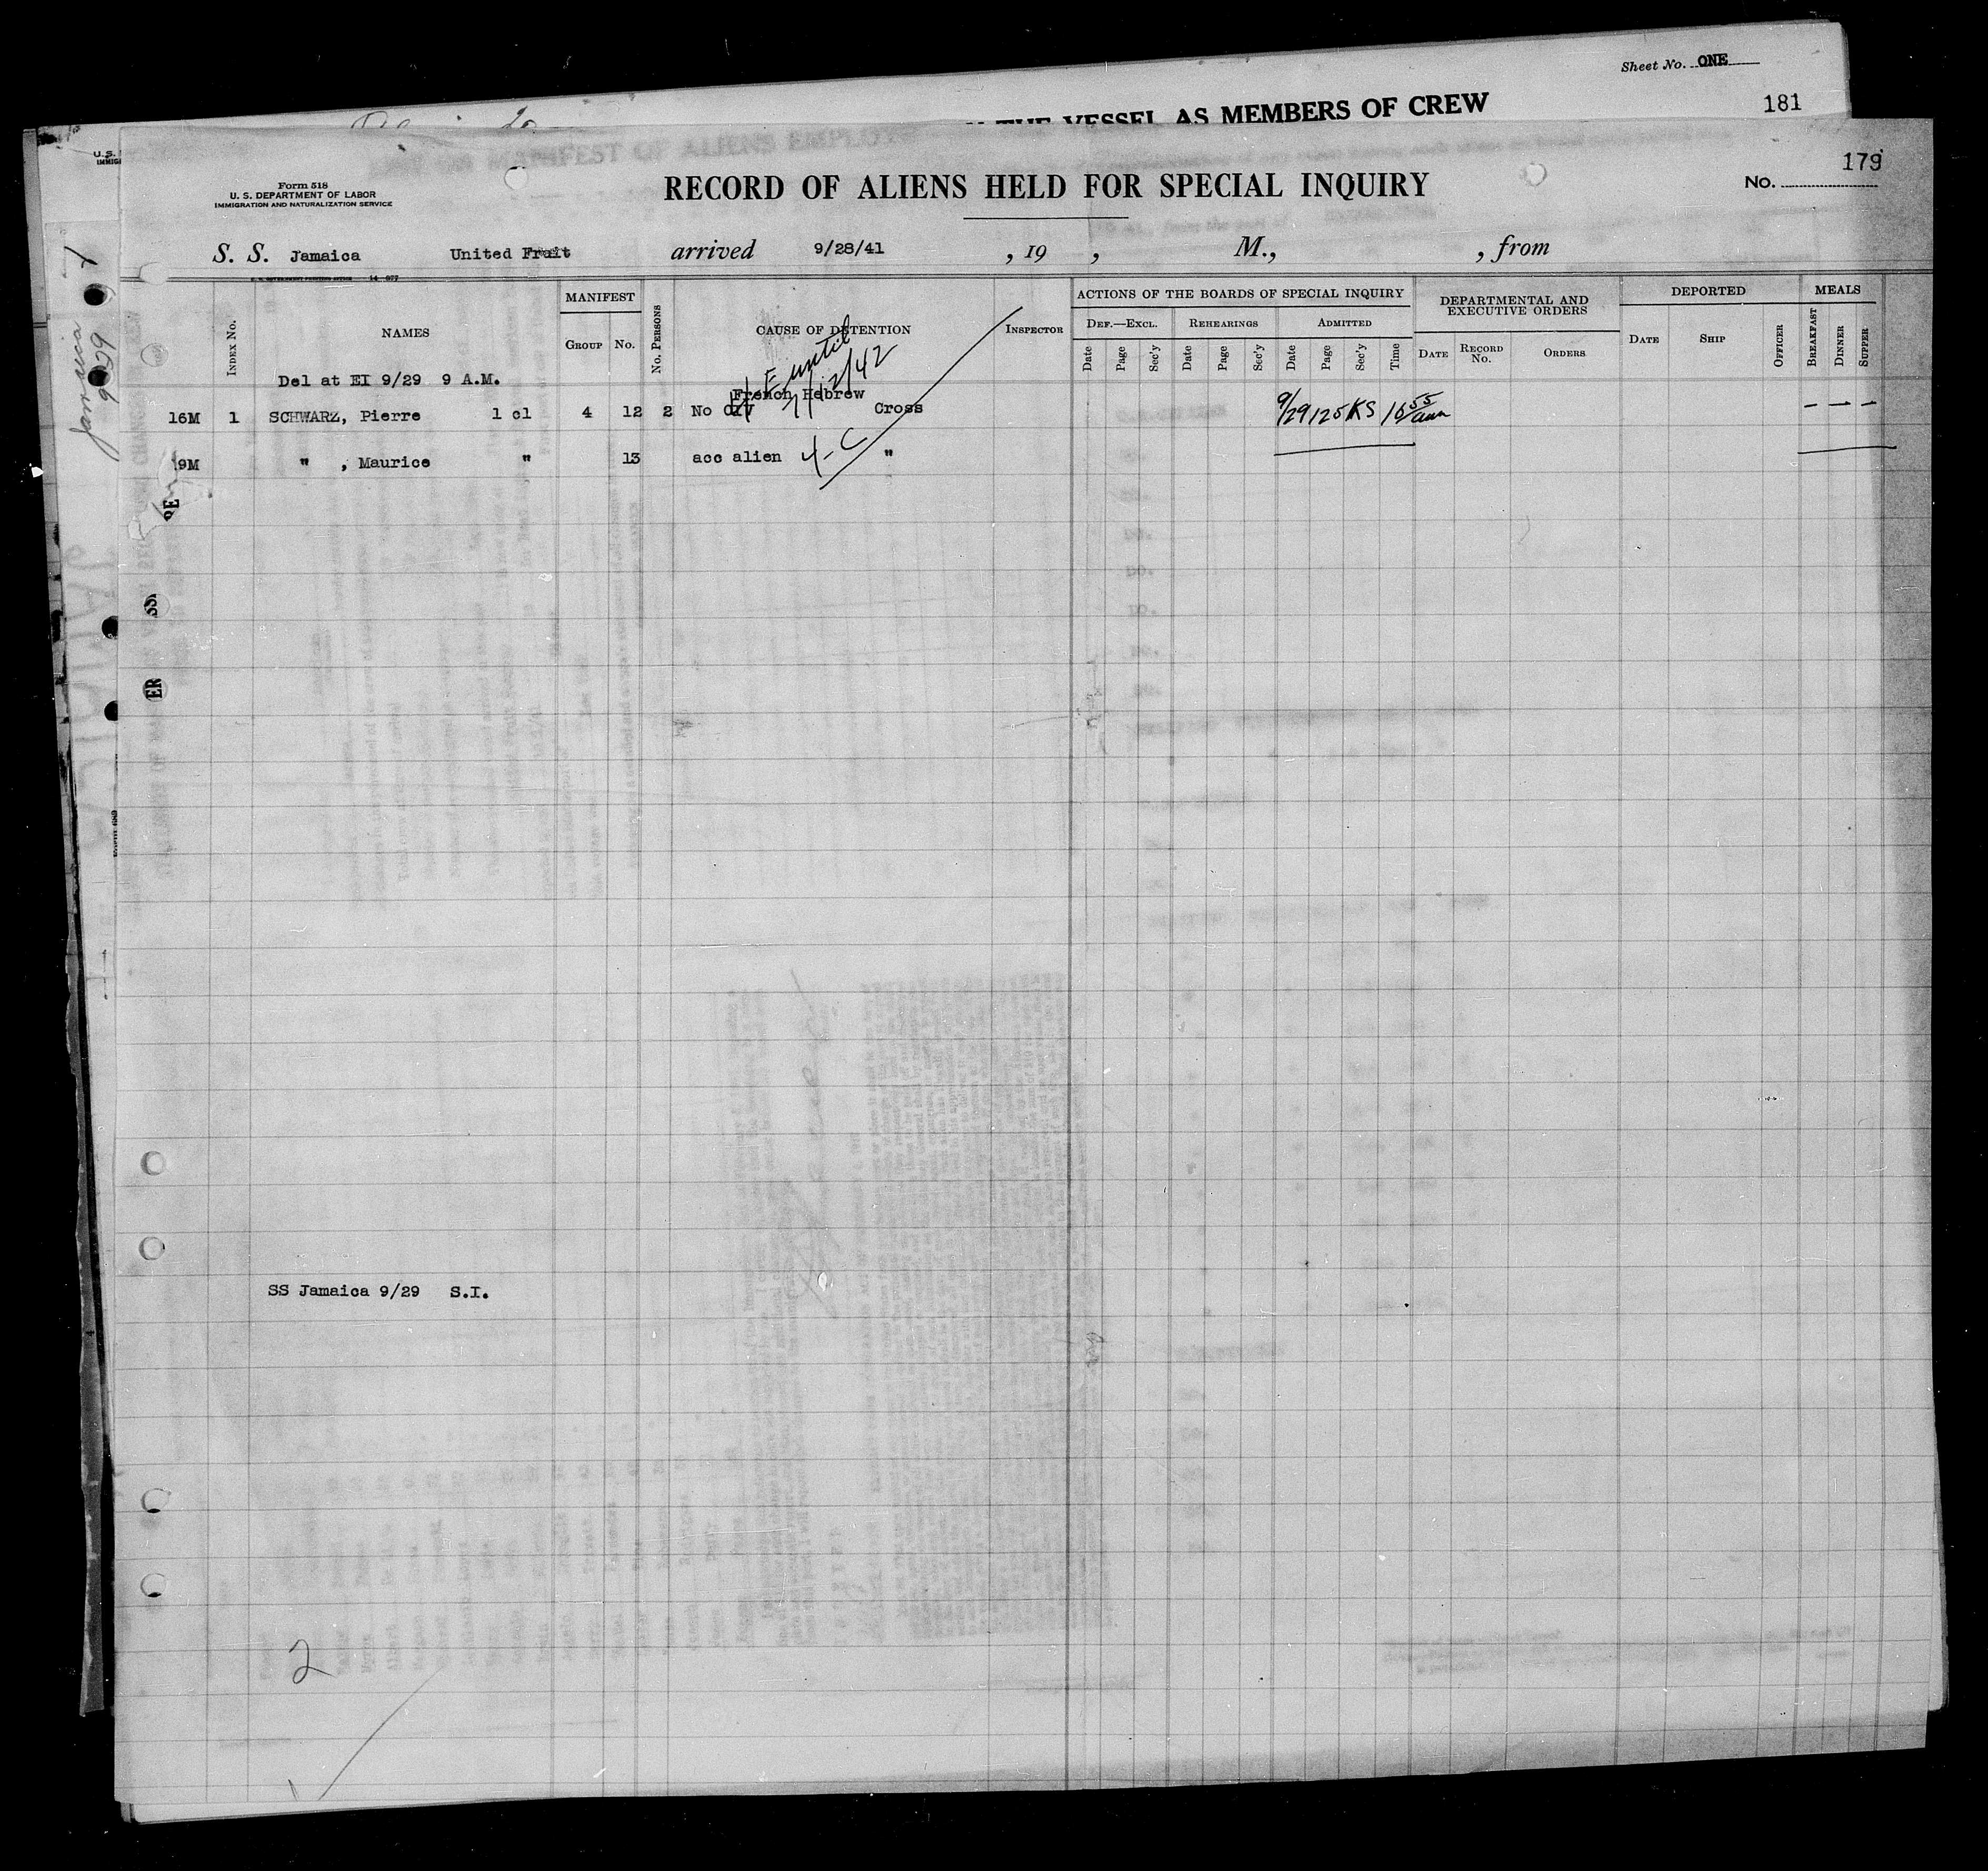 Sheet No. ONE
THE VESSEL AS MEMBERS OF CREW
181
179
Form 518
U. S. DEPARTMENT OF LABOR
IMMIGRATION AND NATURALIZATION SERVICE
RECORD OF ALIENS HELD FOR SPECIAL INQUIRY
No.
S. S. Jamaica United Fruit arrived 9/28/41 , 19 , M., , from
Jamaica
9/29
INDEX No.
NAMES
MANIFEST
GROUP No.
No. PERSONS
CAUSE OF DETENTION
INSPECTOR
ACTIONS OF THE BOARDS OF SPECIAL INQUIRY
DEF.—EXCL. REHEARINGS ADMITTED
Date Page Sec'y Date Page Sec'y Date Page Sec'y Time
DEPARTMENTAL AND EXECUTIVE ORDERS
DATE RECORD No. ORDERS
DEPORTED
DATE SHIP OFFICER
MEALS
BREAKFAST DINNER SUPPER
until
Del at EI 9/29 9 A.M.
French Hebrew
16M 1 SCHWARZ, Pierre 1 cl 4 12 2 No CIV Cross 9/29 125 KS 10 55 am — — —
19M " , Maurice " 13 acc alien 4-C "
SS Jamaica 9/29 S.I.
2